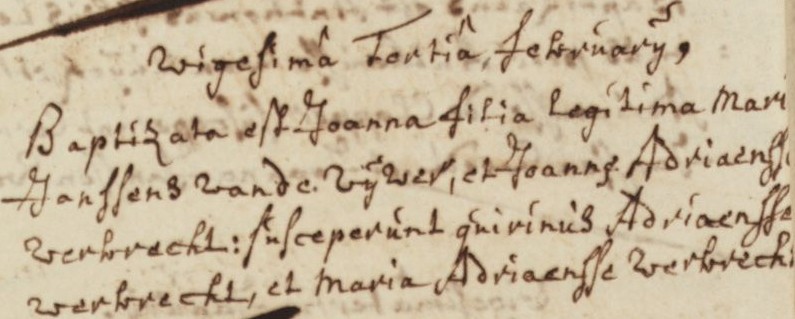 vigesimâ Tertiâ, februarÿ,
Baptizata est Joanna filia legitima Mari
Janssens vande. Vÿver, et Joannes Adriaensse
verbrecht: susceperunt quirinus Adriaensse
verbrecht, et Maria Adriaensse verbrecht